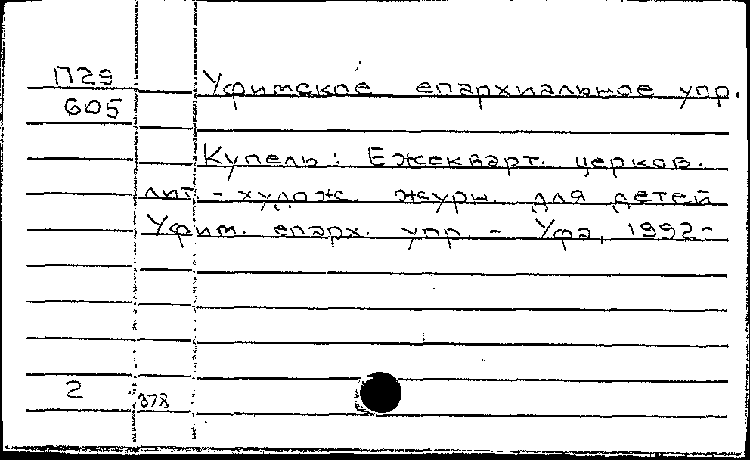 П29 Уфимское епархиальное упр.
605
Купель: Ежекварт. церков.
лит-худож. журн. для детей
Уфим. епарх. упр. - Уфа, 1992-
2 378